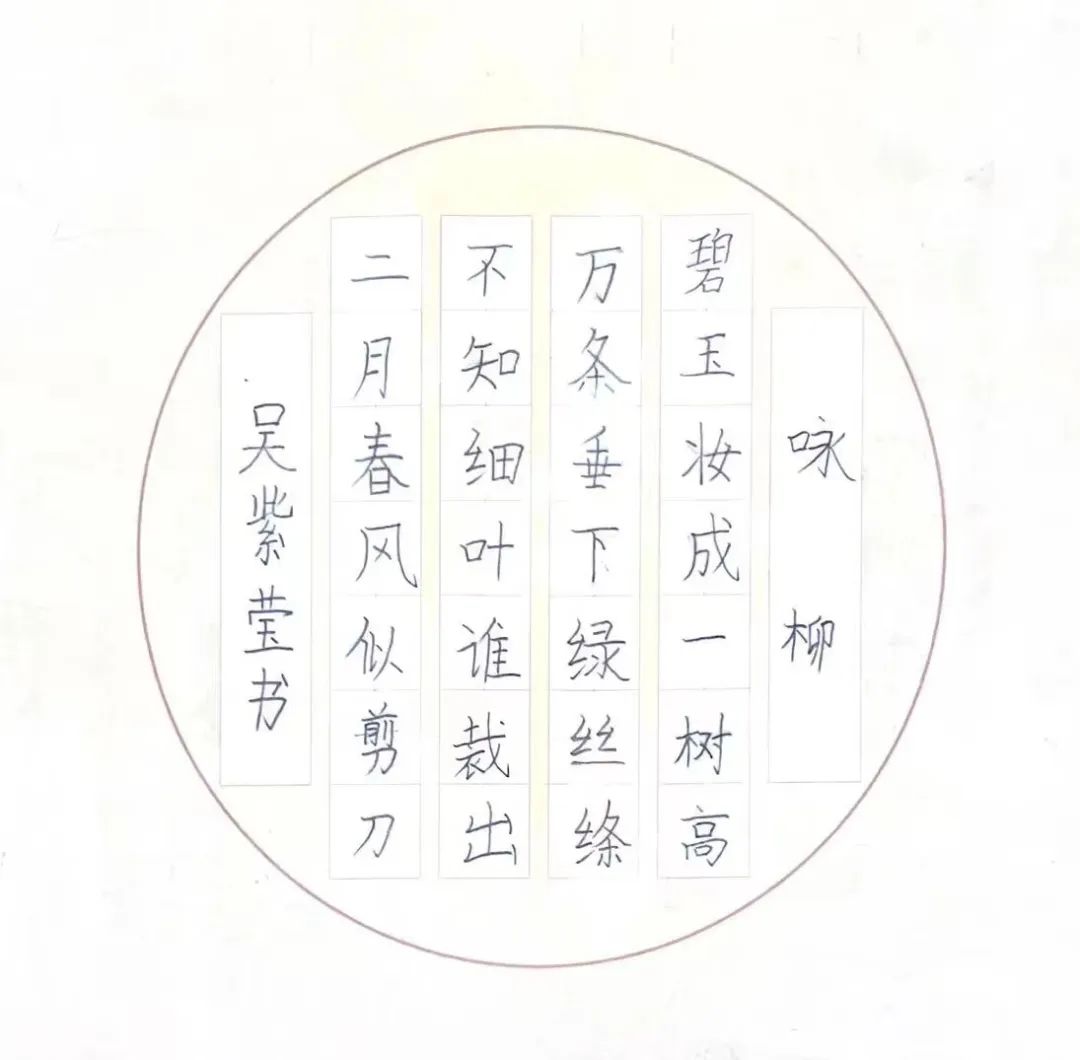 咏柳
碧玉妆成一树高
万条垂下绿丝绦
不知细叶谁裁出
二月春风似剪刀
吴紫莹书